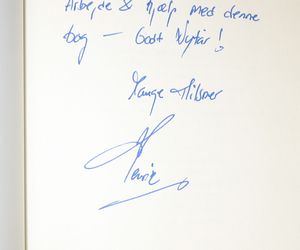 Arbejde & hjælp med denne
bog — Godt Nytår!
Mange Hilsner
Henrik